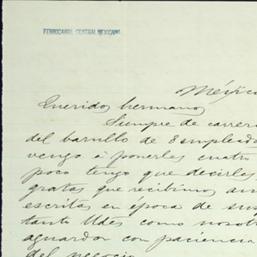 FERROCARRIL CENTRAL MEXICANO.
Méjico
Querido hermano
Siempre de carrera
del barullo de 8 empleados
vengo á ponerles cuatro
poco tengo que decirles
gratas que recibimos
escritas en época de
tanto Udes como nosotros
aguardar con paciencia
del negocio